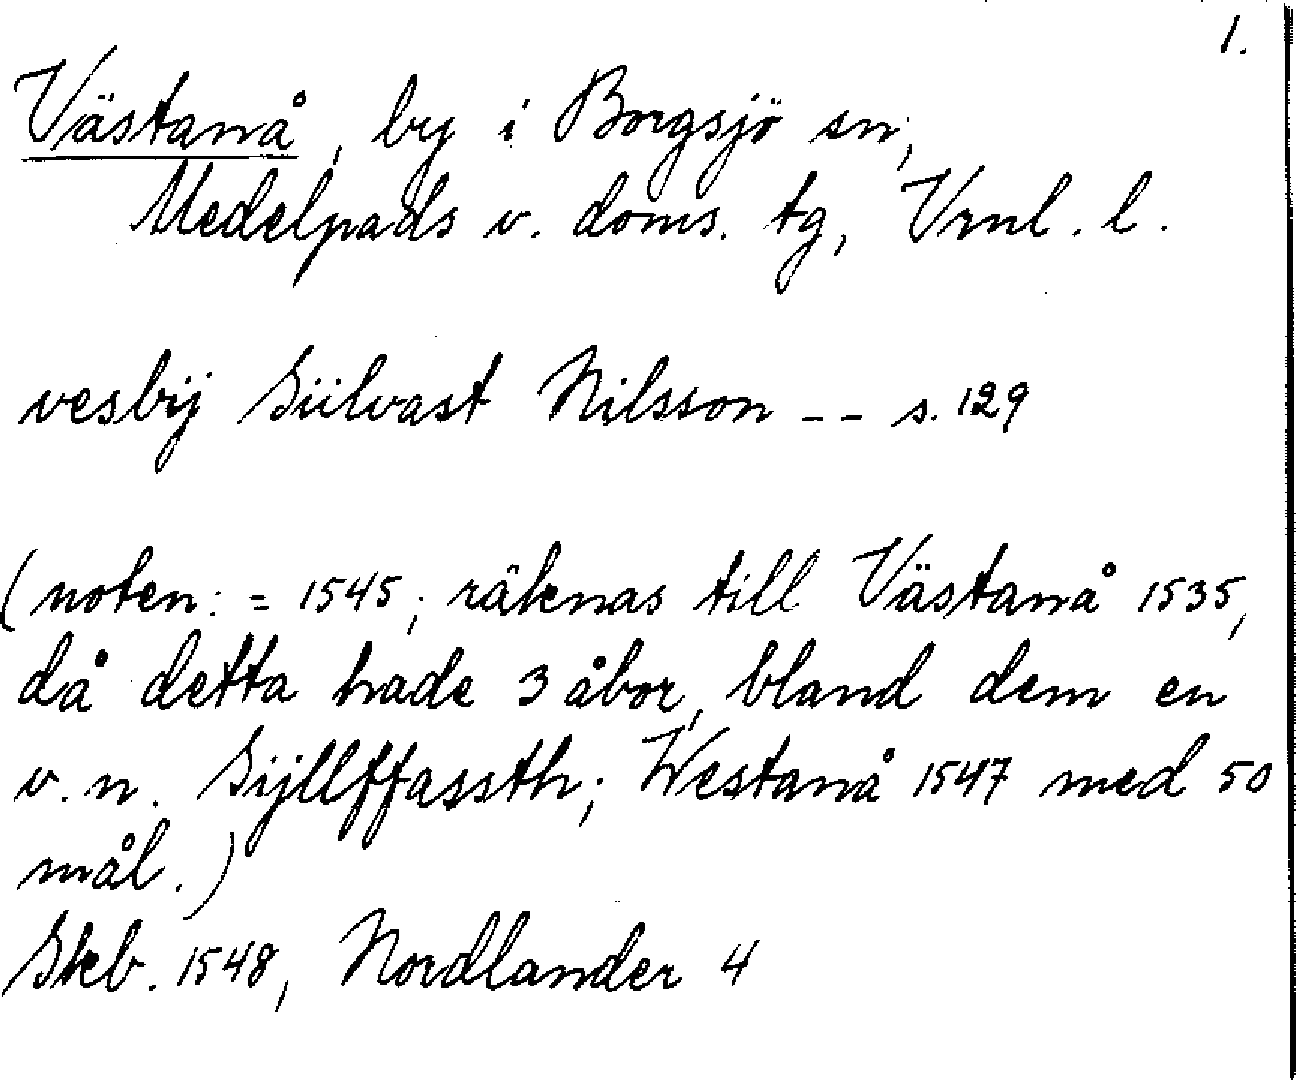 1.
Västanå, by i Borgsjö sn,
Medelpads v. doms. tg, Vrnl. l.
vesbÿ Siilvast Nilsson -- s. 129
(noten: = 1545; räknas till Västanå 1535,
då detta hade 3 åbor, bland dem en
v. n. Sijllffassth; Westanå 1547 med 50
mål.)
Skb. 1548, Nordlander 4